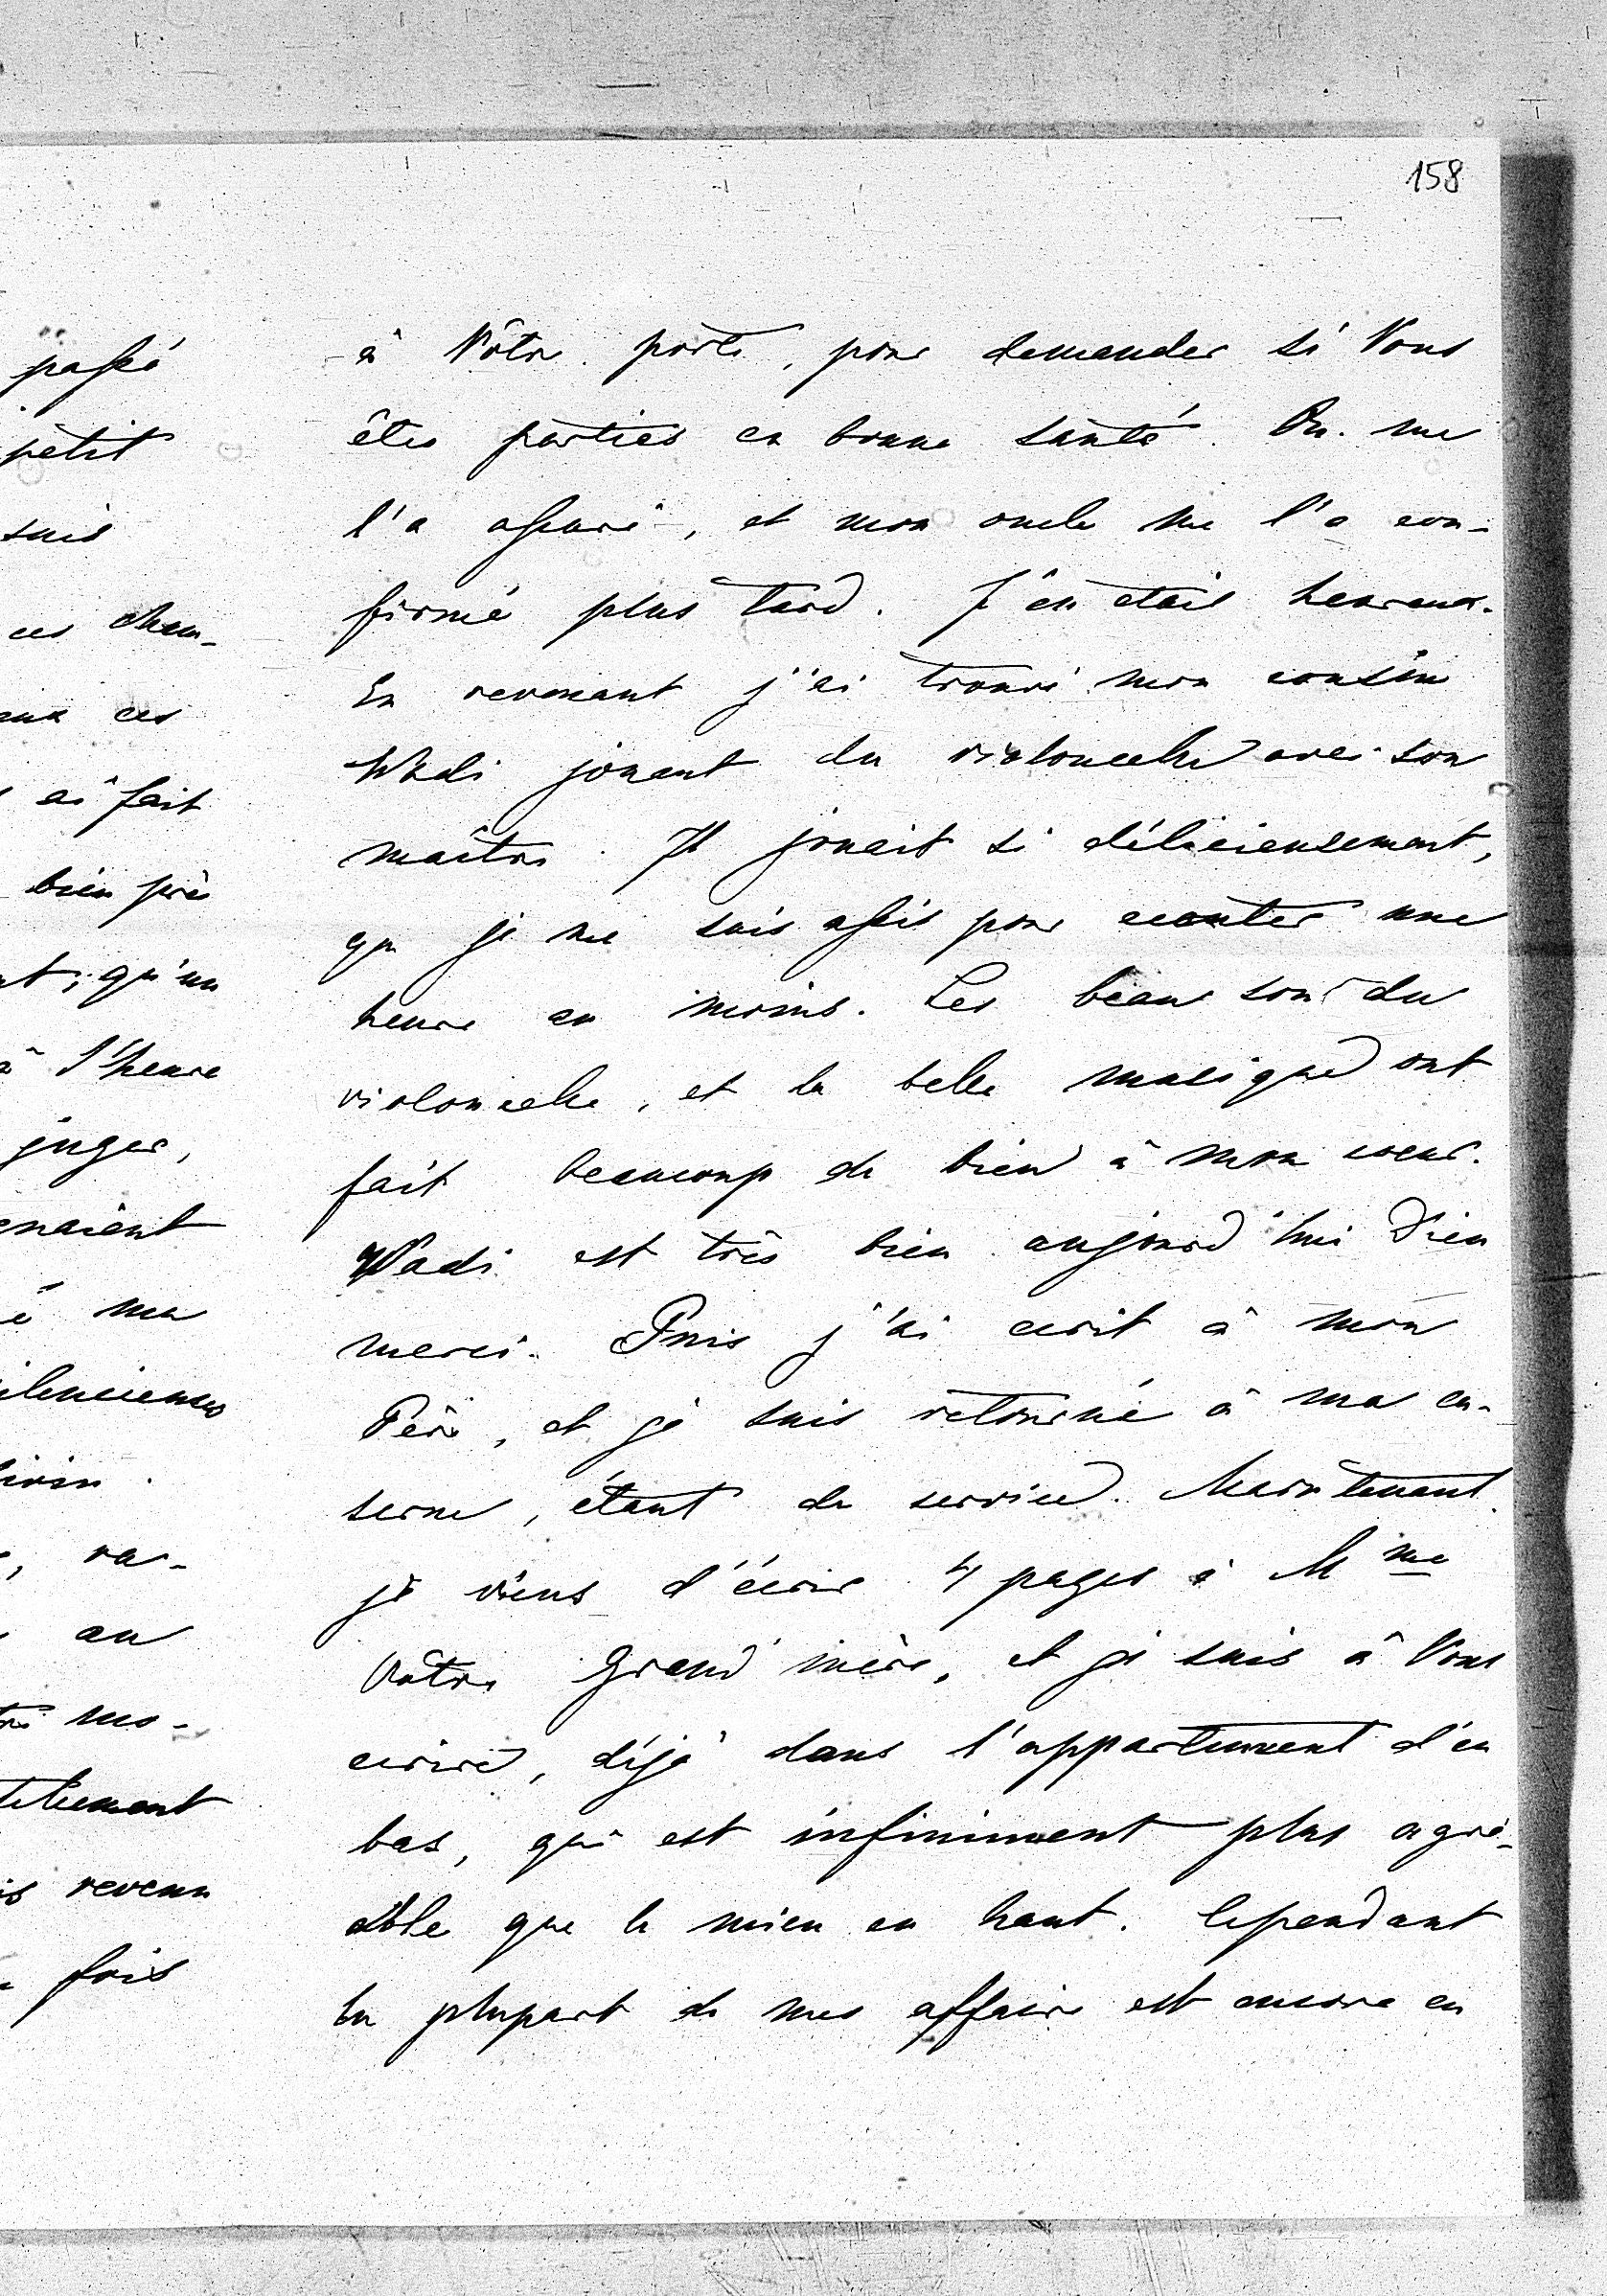 158
passé
petit
suis
ces cham-
aux ces
ai fait
bien près
qu'un
à l'heure
juger,
ma
va-
au
mo-
revenu
fois
à Vôtre porte, pour demander si Vous
êtes parties en bonne santé. On me
l'a assuré, et mon oncle me l'a con-
firmé plus tard. J'en étais heureux.
En revenant j'ai trouvé mon cousin
Wladi jouant du violoncelle avec son
maître. Il jouait si délicieusement,
que je me suis assis pour ecouter une
heure au moins. Les beaux sons du
violoncelle, et la belle musique ont
fait beaucoup de bien à mon coeur.
Wladi est très bien aujourd'hui Dieu
merci. Puis j'ai ecrit à mon
Père, et je suis retourné à ma ca-
serne, étant de service. Maintenant
je viens d'écrire 4 pages à Mme
Vôtre Grand'mère, et je suis à Vous
ecrire, déjà dans l'appartement d'en
bas, qui est infiniment plus agré-
able que le mien en haut. Cependant
la plupart de mes affaire est encore en